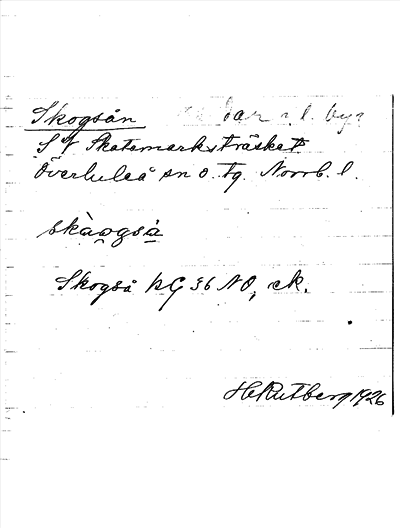 Skogsån
S V Skatamarksträsket
Överluleå sn o. tg. Norrb. l.
skàogså
Skogså KG 36 NO, ek.
H Rutberg 1926